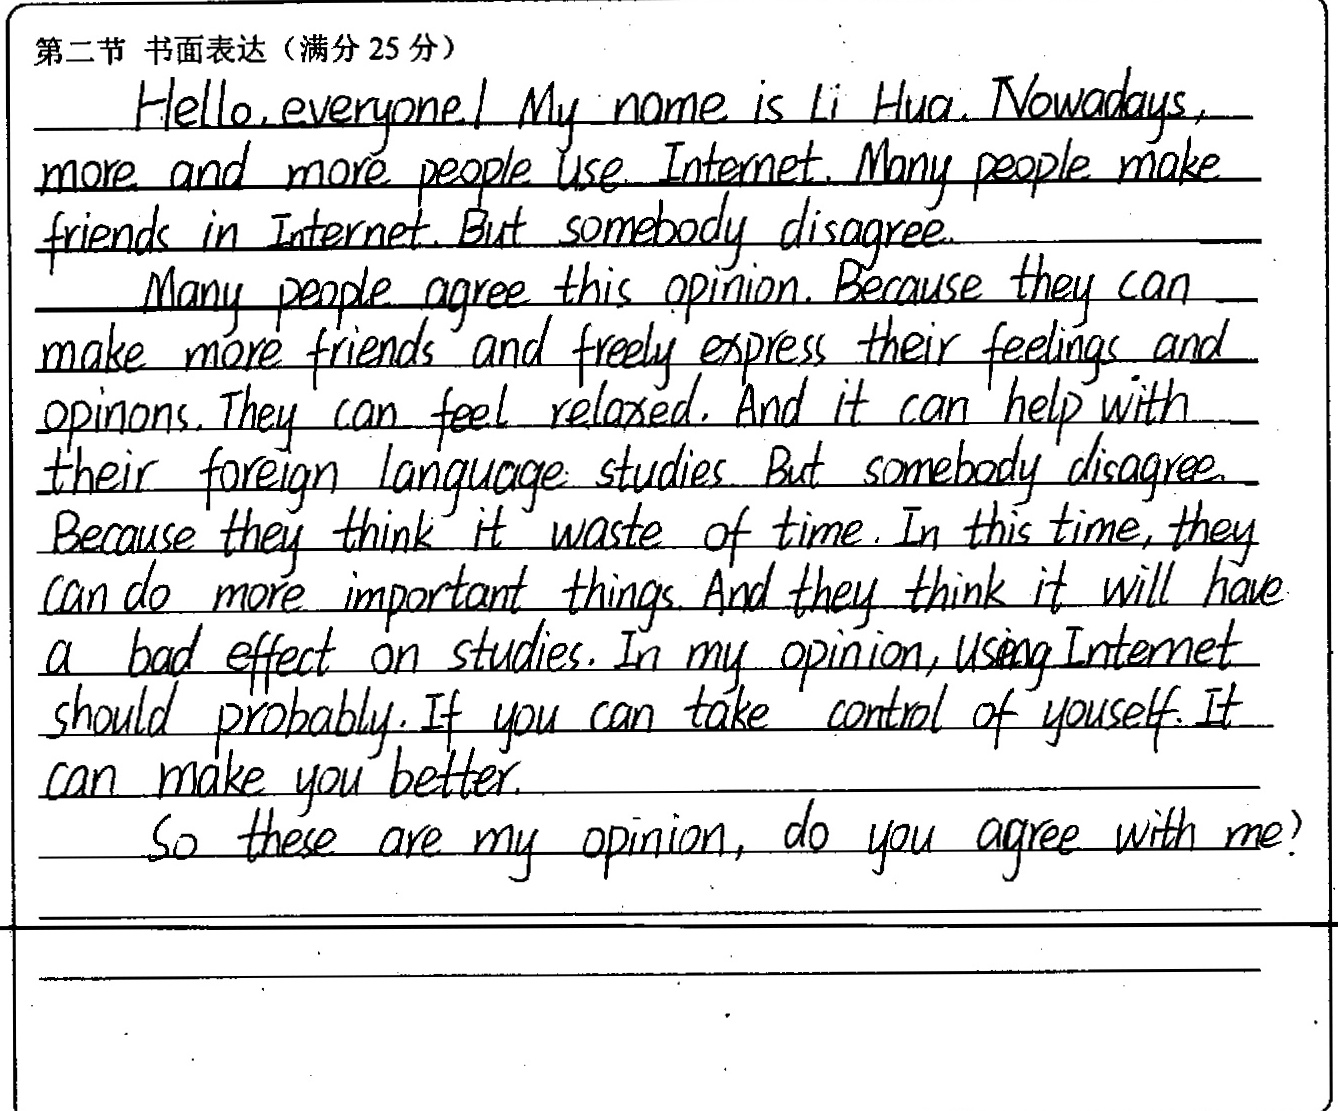 第二节 书面表达（满分 25 分）
Hello, everyone! My name is Li Hua. Nowadays,
more and more people use Internet. Many people make
friends in Internet. But somebody disagree.
Many people agree this opinion. Because they can
make more friends and freely express their feelings and
opinons. They can feel relaxed. And it can help with
their foreign language studies But somebody disagree.
Because they think it waste of time. In this time, they
can do more important things. And they think it will have
a bad effect on studies. In my opinion, Using Internet
should probably. If you can take control of youself. It
can make you better.
So these are my opinion, do you agree with me?